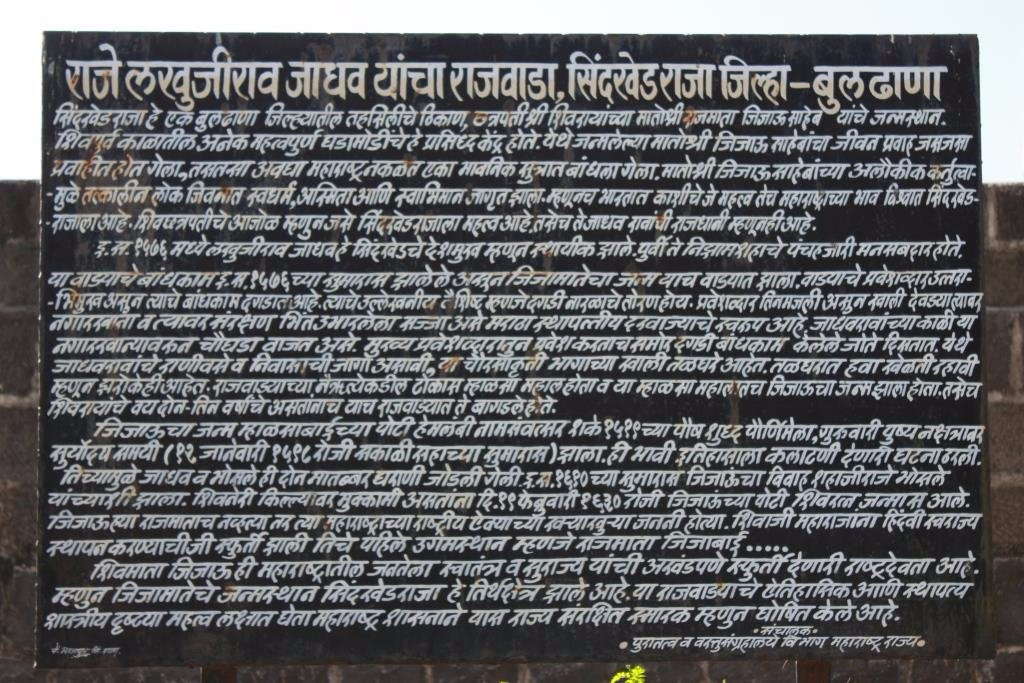 राजे लखुजीराव जाधव यांचा राजवाडा, सिंदखेडराजा जिल्हा-बुलढाणा
सिंदखेडराजा हे एक बुलढाणा जिल्ह्यातील तहसिलीचे ठिकाण, छत्रपती श्री शिवरायांच्या मातोश्री राजमाता जिजाऊ साहेब यांचे जन्मस्थान.
शिवपूर्व काळातील अनेक महत्वपूर्ण घडामोडींचे हे प्रसिध्द केंद्र होते. येथे जन्मलेल्या मातोश्री जिजाऊ साहेबांचा जीवन प्रवाह जसजसा
प्रवाहीत होत गेला, तसतसा अवघा महाराष्ट्र नकळत एका भावनिक सुत्रात बांधला गेला. मातोश्री जिजाऊ साहेबांच्या अलौकीक कर्तुत्वा-
-मुळे तत्कालीन लोक जिवनात स्वधर्म, अस्मिता आणि स्वाभिमान जागृत झाला. म्हणूनच भारतात काशीचे जे महत्व तेच महाराष्ट्राच्या भाव विश्वात सिंदखेड-
-राजाला आहे. शिवछत्रपतींचे आजोळ म्हणुन जसे सिंदखेडराजाला महत्व आहे, तसेच ते जाधव रावांची राजधानी म्हणूनही आहे.
इ.स. १५७६ मध्ये लखुजीराव जाधव हे सिंदखेडचे देशमुख म्हणून स्थायीक झाले. पुर्वी ते निझामशहाचे पंचहजारी मनसबदार होते.
या वाड्याचे बांधकाम इ.स. १५७६ च्या सुमारास झालेले असुन जिजामातेचा जन्म याच वाड्यात झाला. वाड्याचे प्रवेशद्वार उत्तरा-
-भिमुख असुन त्याचे बांधकाम दगडात आहे. त्याचे उल्लेखनीय वैशिष्ट म्हणजे दगडी नारळाचे तोरण होय. प्रवेशद्वार तिनमजली असुन खाली देवड्या त्यावर
नगारखाना व त्यावर संरक्षण भिंत उभारलेला सज्जा असे मराठा स्थापत्यीय दरवाज्याचे स्वरुप आहे. जाधवरावांच्या काळी या
नगारखान्यावरुन चौघडा वाजत असे. मुख्य प्रवेशद्वारातुन प्रवेश करताच समोर दगडी बांधकाम केलेले जोते दिसतात. येथे
जाधवरावांचे राणीवसे व निवासाची जागा असावी, या चौरसाकृती भागाच्या खाली तळघर आहे. तळघरात हवा खेळती रहावी
म्हणून झरोकेही आहेत. राजवाड्याच्या नैऋत्येकडील टोकास म्हाळसा महाल होता व या म्हाळसा महालातच जिजाऊचा जन्म झाला होता. तसेच
शिवरायांचे वय दोन-तिन वर्षांचे असतांनाच याच राजवाड्यात ते बागडले होते.
जिजाऊचा जन्म म्हाळसाबाईच्या पोटी हेमलंबी नामसंवत्सर शके १५१९ च्या पौष शुध्द पौर्णिमेला, गुरुवारी पुष्य नक्षत्रावर
सुर्योदय समयी (१२ जानेवारी १५९८ रोजी सकाळी सहाच्या सुमारास) झाला. ही भावी इतिहासाला कलाटणी देणारी घटना ठरली.
तिच्यामुळे जाधव व भोसले ही दोन मातब्बर घराणी जोडली गेली. इ.स. १६१० च्या सुमारास जिजाऊंचा विवाह शहाजीराजे भोसले
यांच्याशी झाला. शिवनेरी किल्ल्यावर मुक्कामी असताना दि. १९ फेब्रुवारी १६३० रोजी जिजाऊंच्या पोटी शिवरत्न जन्मास आले.
जिजाऊ ह्या राजमाताच नव्हत्या तर त्या महाराष्ट्राच्या राष्ट्रीय ऐक्याच्या खऱ्याखुऱ्या जननी होत्या. शिवाजी महाराजांना हिंदवी स्वराज्य
स्थापन करण्याची जी स्फुर्ती झाली तिचे पहिले उगमस्थान म्हणजे राजमाता जिजाबाई.....
शिवमाता जिजाऊ ही महाराष्ट्रातील जनतेला स्वातंत्र व सुराज्य यांची अखंडपणे स्फुर्ती देणारी राष्ट्रदेवता आहे.
म्हणुन जिजामातेचे जन्मस्थान सिंदखेडराजा हे तिर्थक्षेत्र झाले आहे. या राजवाड्याचे ऐतिहासिक आणि स्थापत्य
शास्त्रीय दृष्ट्या महत्व लक्षात घेता महाराष्ट्र शासनाने यास राज्य संरक्षित स्मारक म्हणुन घोषित केले आहे.
संचालक
पुरातत्व व वस्तुसंग्रहालये विभाग महाराष्ट्र राज्य